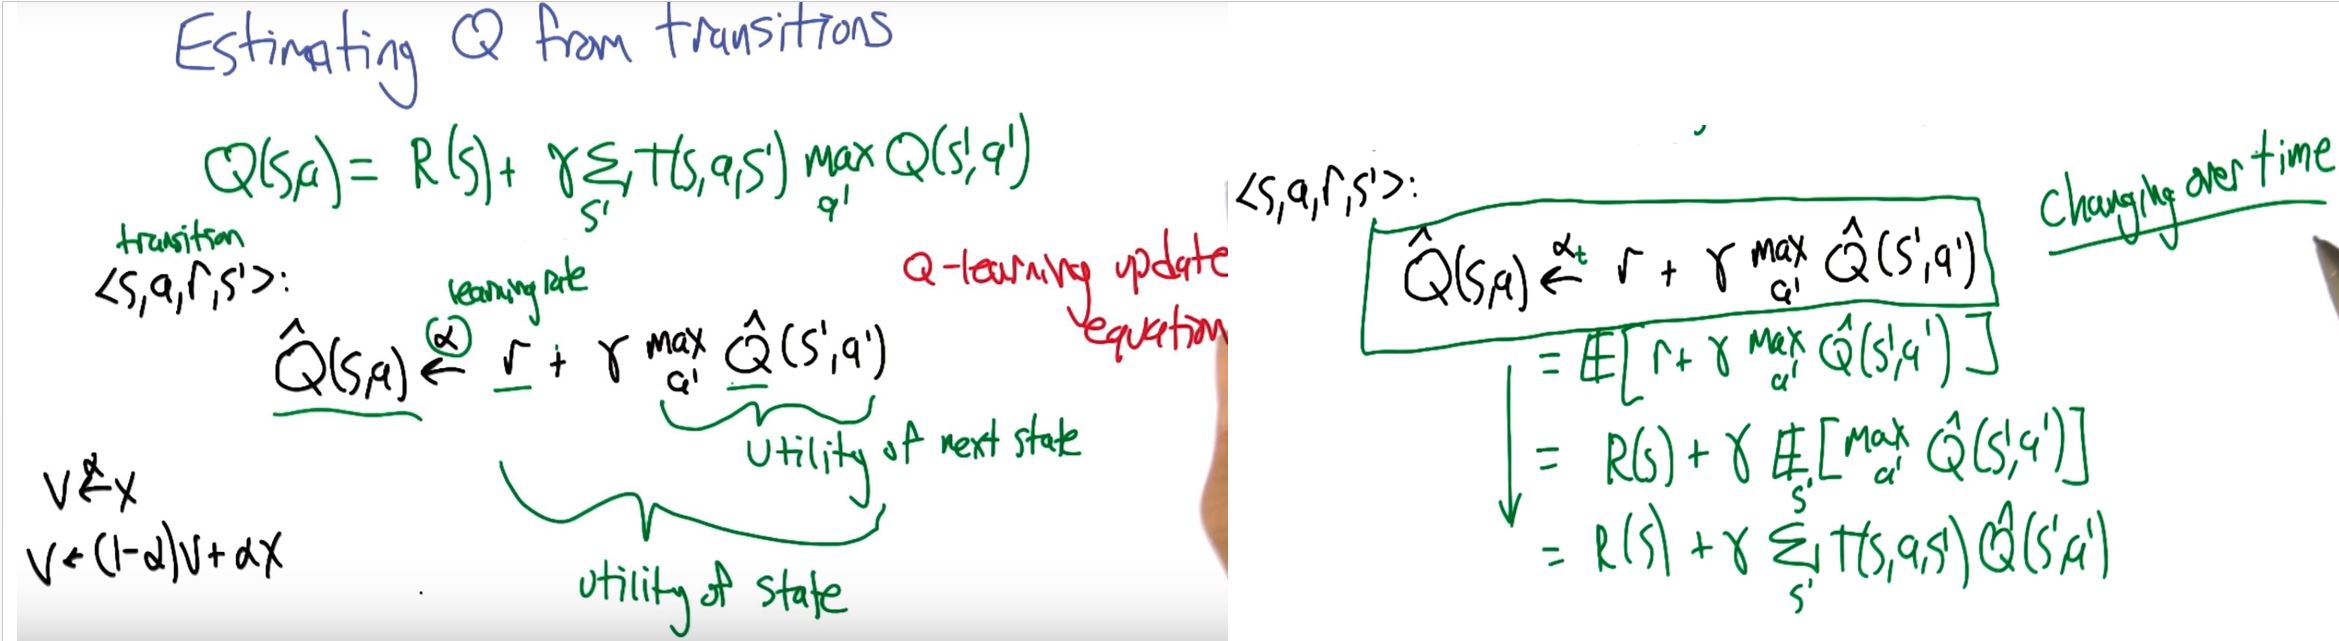 Estimating Q from transitions
Q(s,a) = R(s) + γ Σ_s' T(s,a,s') max_a' Q(s',a')
transition
<s,a,r,s'>:
learning rate
Q̂(s,a) ←^α r + γ max_a' Q̂(s',a')
Q-learning update
equation
utility of next state
utility of state
V ←^α X
V ← (1-α)V + αX
<s,a,r,s'>:
changing over time
Q̂(s,a) ←^α_t r + γ max_a' Q̂(s',a')
= E[r + γ max_a' Q̂(s',a')]
= R(s) + γ E_s'[max_a' Q̂(s',a')]
= R(s) + γ Σ_s' T(s,a,s') Q̂(s',a')